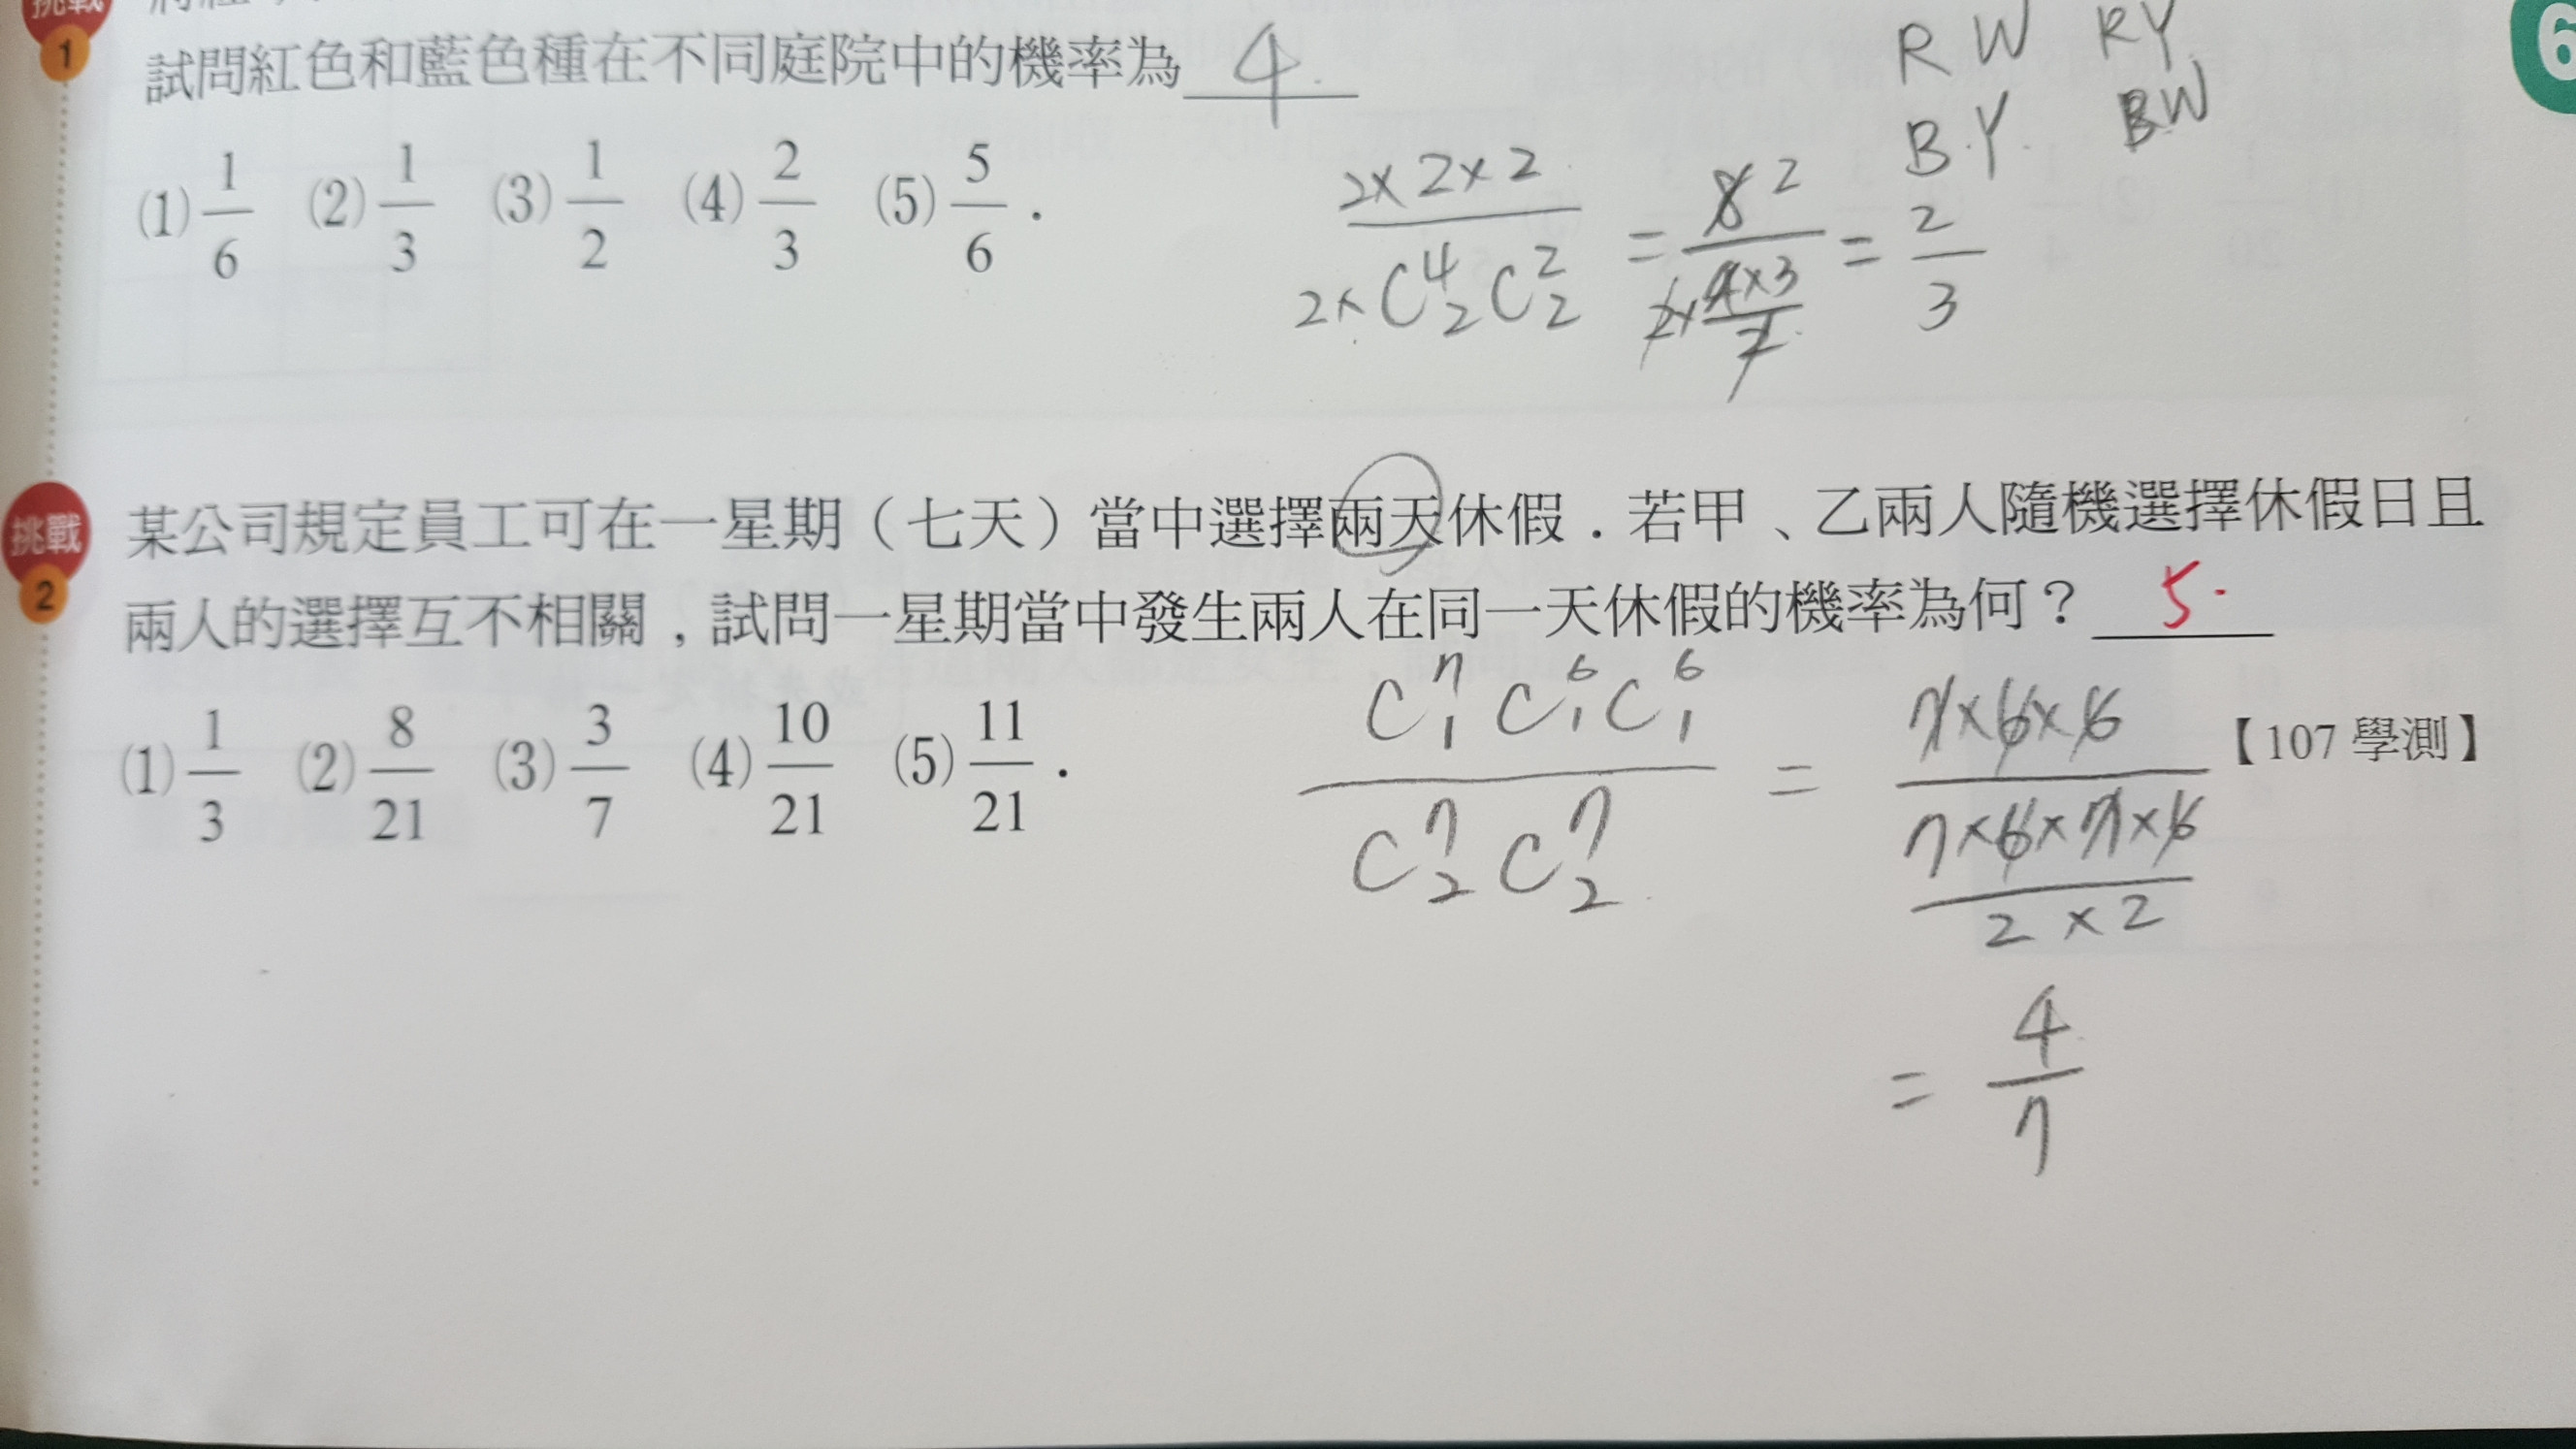 挑戰
1
試問紅色和藍色種在不同庭院中的機率為 4.
(1) 1/6 (2) 1/3 (3) 1/2 (4) 2/3 (5) 5/6 .
R W RY
B.Y. BW
2×2×2 / 2×C⁴₂C²₂ = 8 2 / 2×4×3/2 = 2/3
6
挑戰
2
某公司規定員工可在一星期（七天）當中選擇兩天休假．若甲、乙兩人隨機選擇休假日且
兩人的選擇互不相關，試問一星期當中發生兩人在同一天休假的機率為何？ 5.
(1) 1/3 (2) 8/21 (3) 3/7 (4) 10/21 (5) 11/21 .
【107 學測】
C⁷₁C⁶₁C⁶₁ / C⁷₂C⁷₂ = 7×6×6 / 7×6×7×6 / 2×2
= 4/7